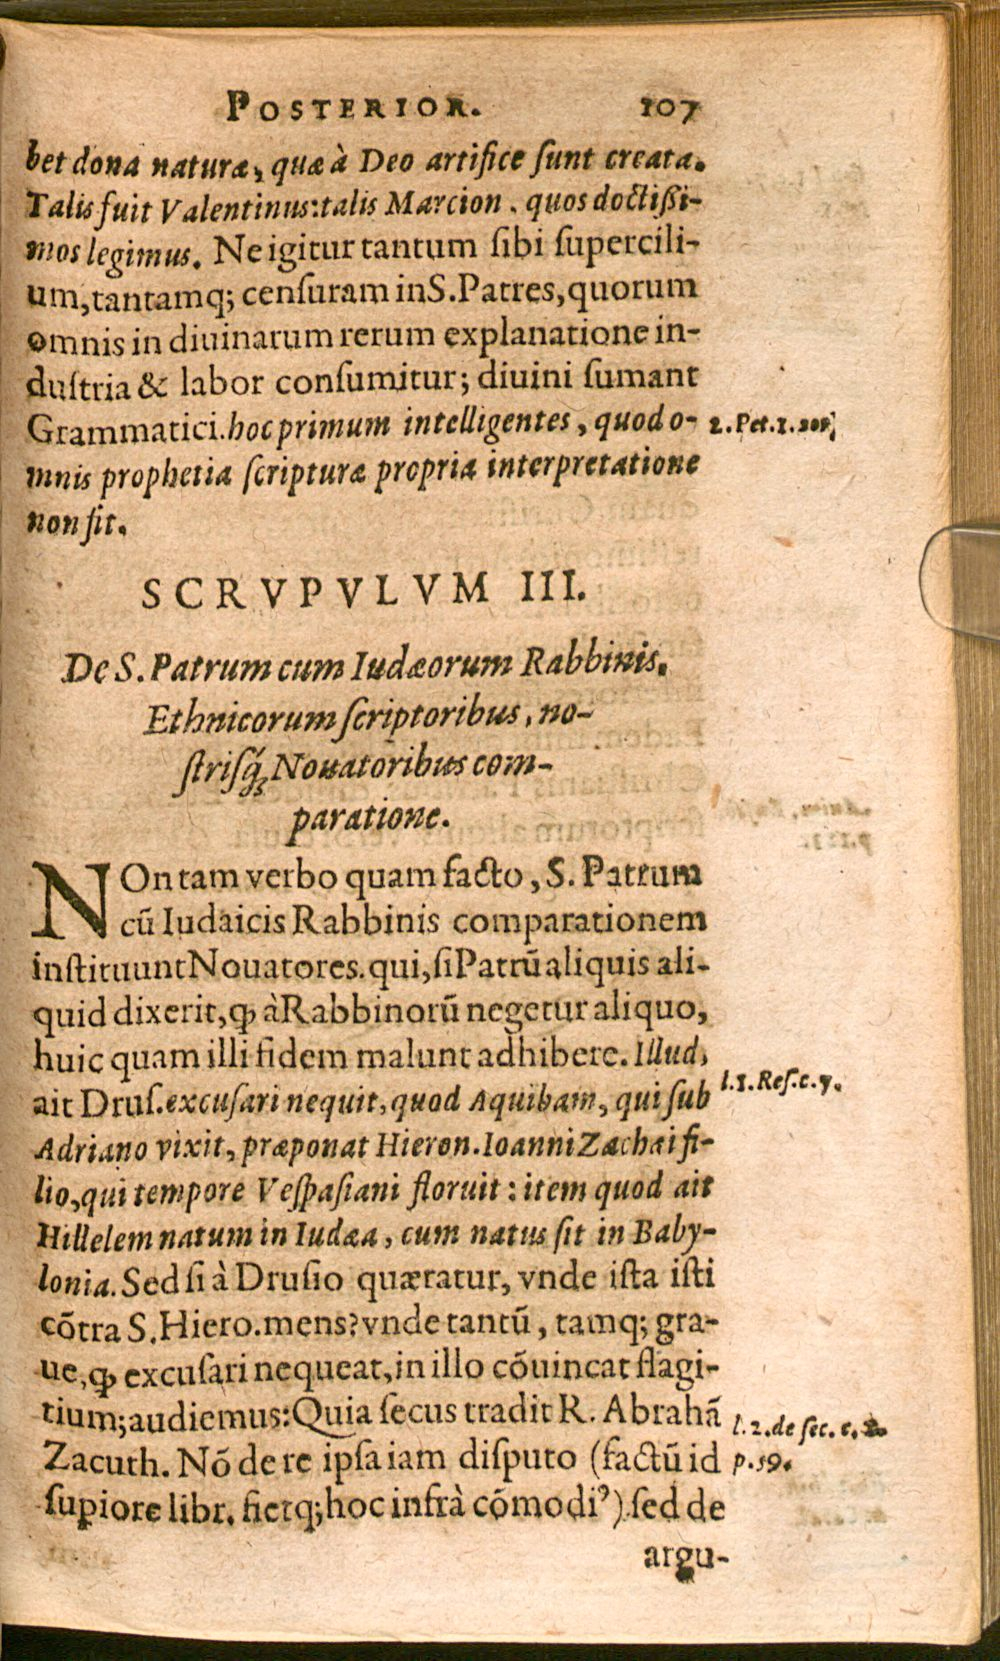 POSTERIOR. 107
bet dona naturæ, quæ à Deo artifice sunt creata.
Talis fuit Valentinus: talis Marcion. quos doctißi-
mos legimus. Ne igitur tantum sibi supercili-
um, tantamq; censuram in S. Patres, quorum
omnis in diuinarum rerum explanatione in-
dustria & labor consumitur; diuini sumant
Grammatici. hoc primum intelligentes, quod o-
2. Pet. 1.
mnis prophetia scripturæ propria interpretatione
non sit.
SCRVPVLVM III.
De S. Patrum cum Iudæorum Rabbinis.
Ethnicorum scriptoribus, no-
strisq́; Nouatoribus com-
paratione.
NOn tam verbo quam facto, S. Patrum
cũ Iudaicis Rabbinis comparationem
instituunt Nouatores. qui, si Patrũ aliquis ali-
quid dixerit, ꝙ à Rabbinorũ negetur aliquo,
huic quam illi fidem malunt adhibere. Illud,
ait Drus. excusari nequit, quod Aquibam, qui sub
l. 1. Res. c. 7.
Adriano vixit, præponat Hieron. Ioanni Zachai fi-
lio, qui tempore Vespasiani floruit: item quod ait
Hillelem natum in Iudæa, cum natus sit in Baby-
lonia. Sed si à Drusio quæratur, vnde ista isti
cõtra S. Hiero. mens? vnde tantũ, tamq; gra-
ue, ꝙ excusari nequeat, in illo cõuincat flagi-
tium; audiemus: Quia secus tradit R. Abrahã
l. 2. de sec. c.
Zacuth. Nõ de re ipsa iam disputo (factũ id
p. 59.
supiore libr. fietq; hoc infrà cõmodiꝰ) sed de
argu-